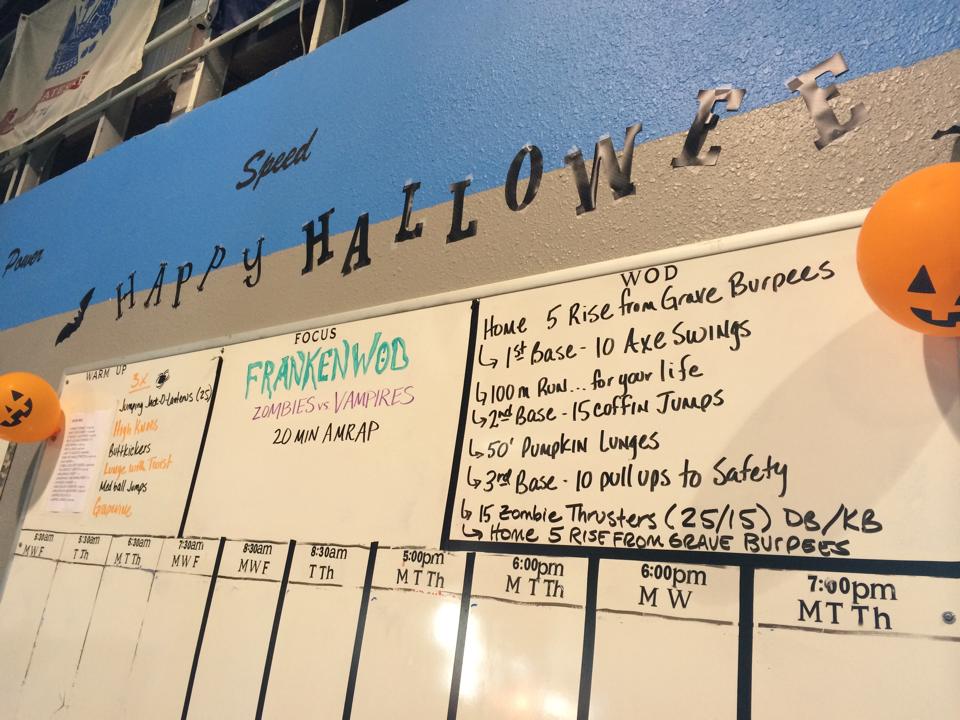 Speed
Power
HAPPY HALLOWEE
WARM UP
3x
Jumping Jack-O-Lanterns (25)
High Knees
Buttkickers
Lunge with Twist
Med Ball Jumps
Grapevine
FOCUS
FRANKENWOD
ZOMBIES vs VAMPIRES
20 MIN AMRAP
WOD
Home 5 Rise from Grave Burpees
↳ 1st Base - 10 Axe Swings
↳ 100m Run... for your life
↳ 2nd Base - 15 coffin Jumps
↳ 50' Pumpkin Lunges
↳ 3rd Base - 10 pull ups to Safety
↳ 15 Zombie Thrusters (25/15) DB/KB
↳ Home 5 RISE FROM GRAVE BURPEES
5:30am
5:30am
6:30am
7:30am
8:30am
8:30am
5:00pm
6:00pm
6:00pm
7:00pm
M W F
T Th
M T Th
M W F
M W F
T Th
M T Th
M T Th
M W
M T Th